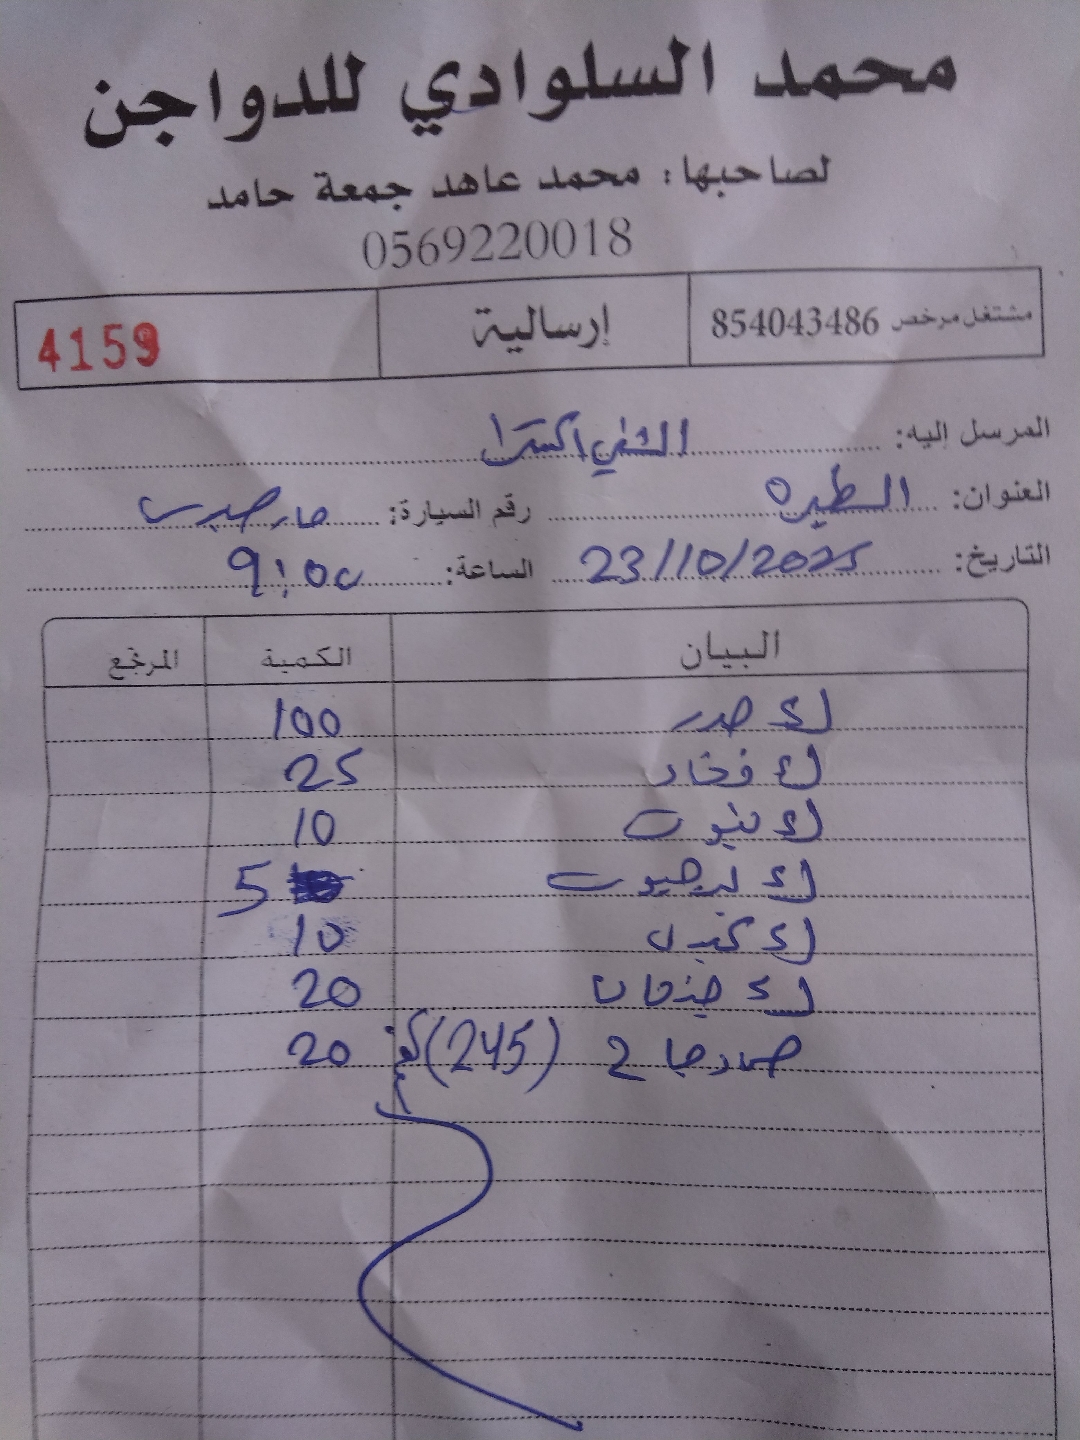 محمد السلوادي للدواجن
لصاحبها: محمد عاهد جمعة حامد
0569220018
مشتغل مرخص 854043486 إرسالية 4159
المرسل إليه: الشني اكسترا
العنوان: الطيره رقم السيارة:
التاريخ: 23/10/2025 الساعة: 9:00
البيان الكمية المرتجع
ك صدر 100
ك فخاد 25
ك 10
ك 5
ك 10
ك 20
(245) 20